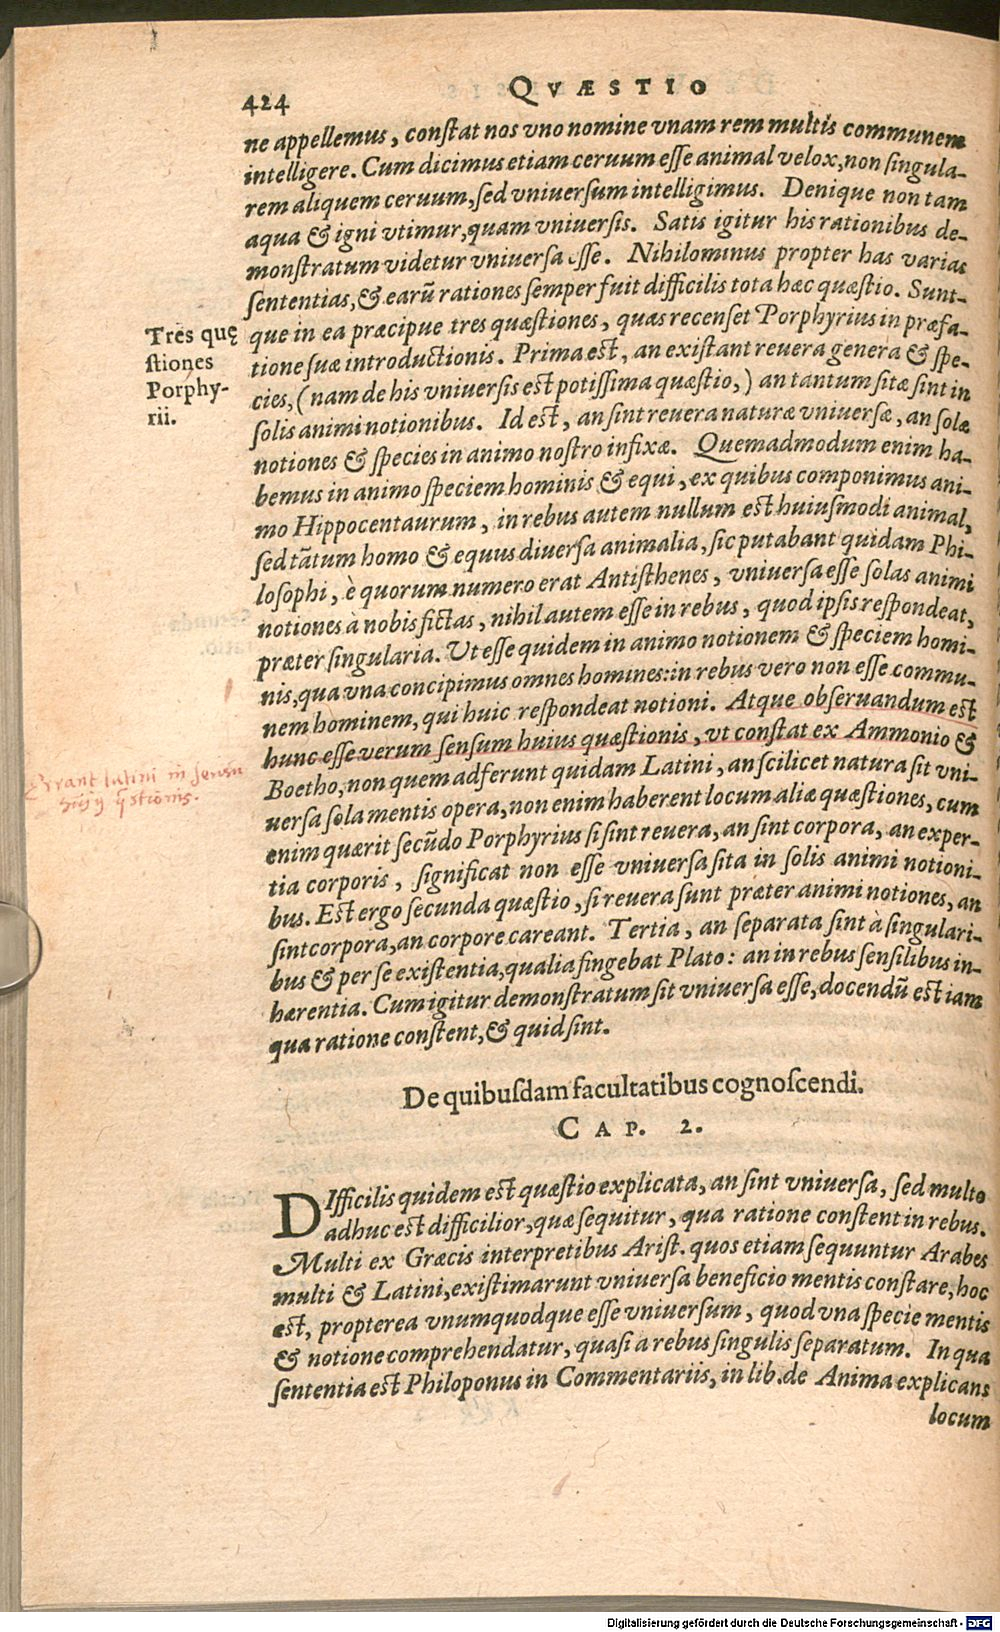 424
QVÆSTIO
ne appellemus, conſtat nos vno nomine vnam rem multis communem
intelligere. Cum dicimus etiam ceruum eſſe animal velox, non ſingula-
rem aliquem ceruum, ſed vniuerſum intelligimus. Denique non tam
aqua & igni vtimur, quam vniuerſis. Satis igitur his rationibus de-
monſtratum videtur vniuerſa eſſe. Nihilominus propter has varias
ſententias, & earũ rationes ſemper fuit difficilis tota hæc quæſtio. Sunt-
que in ea præcipue tres quæſtiones, quas recenſet Porphyrius in præfa-
tione ſuæ introductionis. Prima est, an exiſtant reuera genera & ſpe-
cies, (nam de his vniuerſis est potiſſima quæſtio,) an tantum ſitæ ſint in
ſolis animi notionibus. Id est, an ſint reuera naturæ vniuerſæ, an ſolæ
notiones & ſpecies in animo noſtro infixæ. Quemadmodum enim ha-
bemus in animo ſpeciem hominis & equi, ex quibus componimus ani-
mo Hippocentaurum, in rebus autem nullum est huiuſmodi animal,
ſed tãtum homo & equus diuerſa animalia, ſic putabant quidam Phi-
loſophi, è quorum numero erat Antiſthenes, vniuerſa eſſe ſolas animi
notiones à nobis fictas, nihil autem eſſe in rebus, quod ipſis reſpondeat,
præter ſingularia. Ut eſſe quidem in animo notionem & ſpeciem homi-
nis, qua vna concipimus omnes homines: in rebus vero non eſſe commu-
nem hominem, qui huic reſpondeat notioni. Atque obſeruandum est
hunc eſſe verum ſenſum huius quæſtionis, vt conſtat ex Ammonio &
Boetho, non quem adferunt quidam Latini, an ſcilicet natura ſit vni-
uerſa ſola mentis opera, non enim haberent locum aliæ quæſtiones, cum
enim quærit ſecũdo Porphyrius ſi ſint reuera, an ſint corpora, an exper-
tia corporis, ſignificat non eſſe vniuerſa ſita in ſolis animi notioni-
bus. Est ergo ſecunda quæſtio, ſi reuera ſunt præter animi notiones, an
ſint corpora, an corpore careant. Tertia, an ſeparata ſint à ſingulari-
bus & per ſe exiſtentia, qualia fingebat Plato: an in rebus ſenſilibus in-
hærentia. Cum igitur demonſtratum ſit vniuerſa eſſe, docendũ est iam
qua ratione conſtent, & quid ſint.
Tres quę
ſtiones
Porphy-
rii.
Errant latini in ſenſu
De quibuſdam facultatibus cognoſcendi.
CAP. 2.
DIfficilis quidem est quæſtio explicata, an ſint vniuerſa, ſed multo
adhuc est difficilior, quæ ſequitur, qua ratione conſtent in rebus.
Multi ex Græcis interpretibus Ariſt. quos etiam ſequuntur Arabes
multi & Latini, exiſtimarunt vniuerſa beneficio mentis conſtare, hoc
est, propterea vnumquodque eſſe vniuerſum, quod vna ſpecie mentis
& notione comprehendatur, quaſi a rebus ſingulis ſeparatum. In qua
ſententia est Philoponus in Commentariis, in lib. de Anima explicans
locum
Digitalisierung gefördert durch die Deutsche Forschungsgemeinschaft - DFG